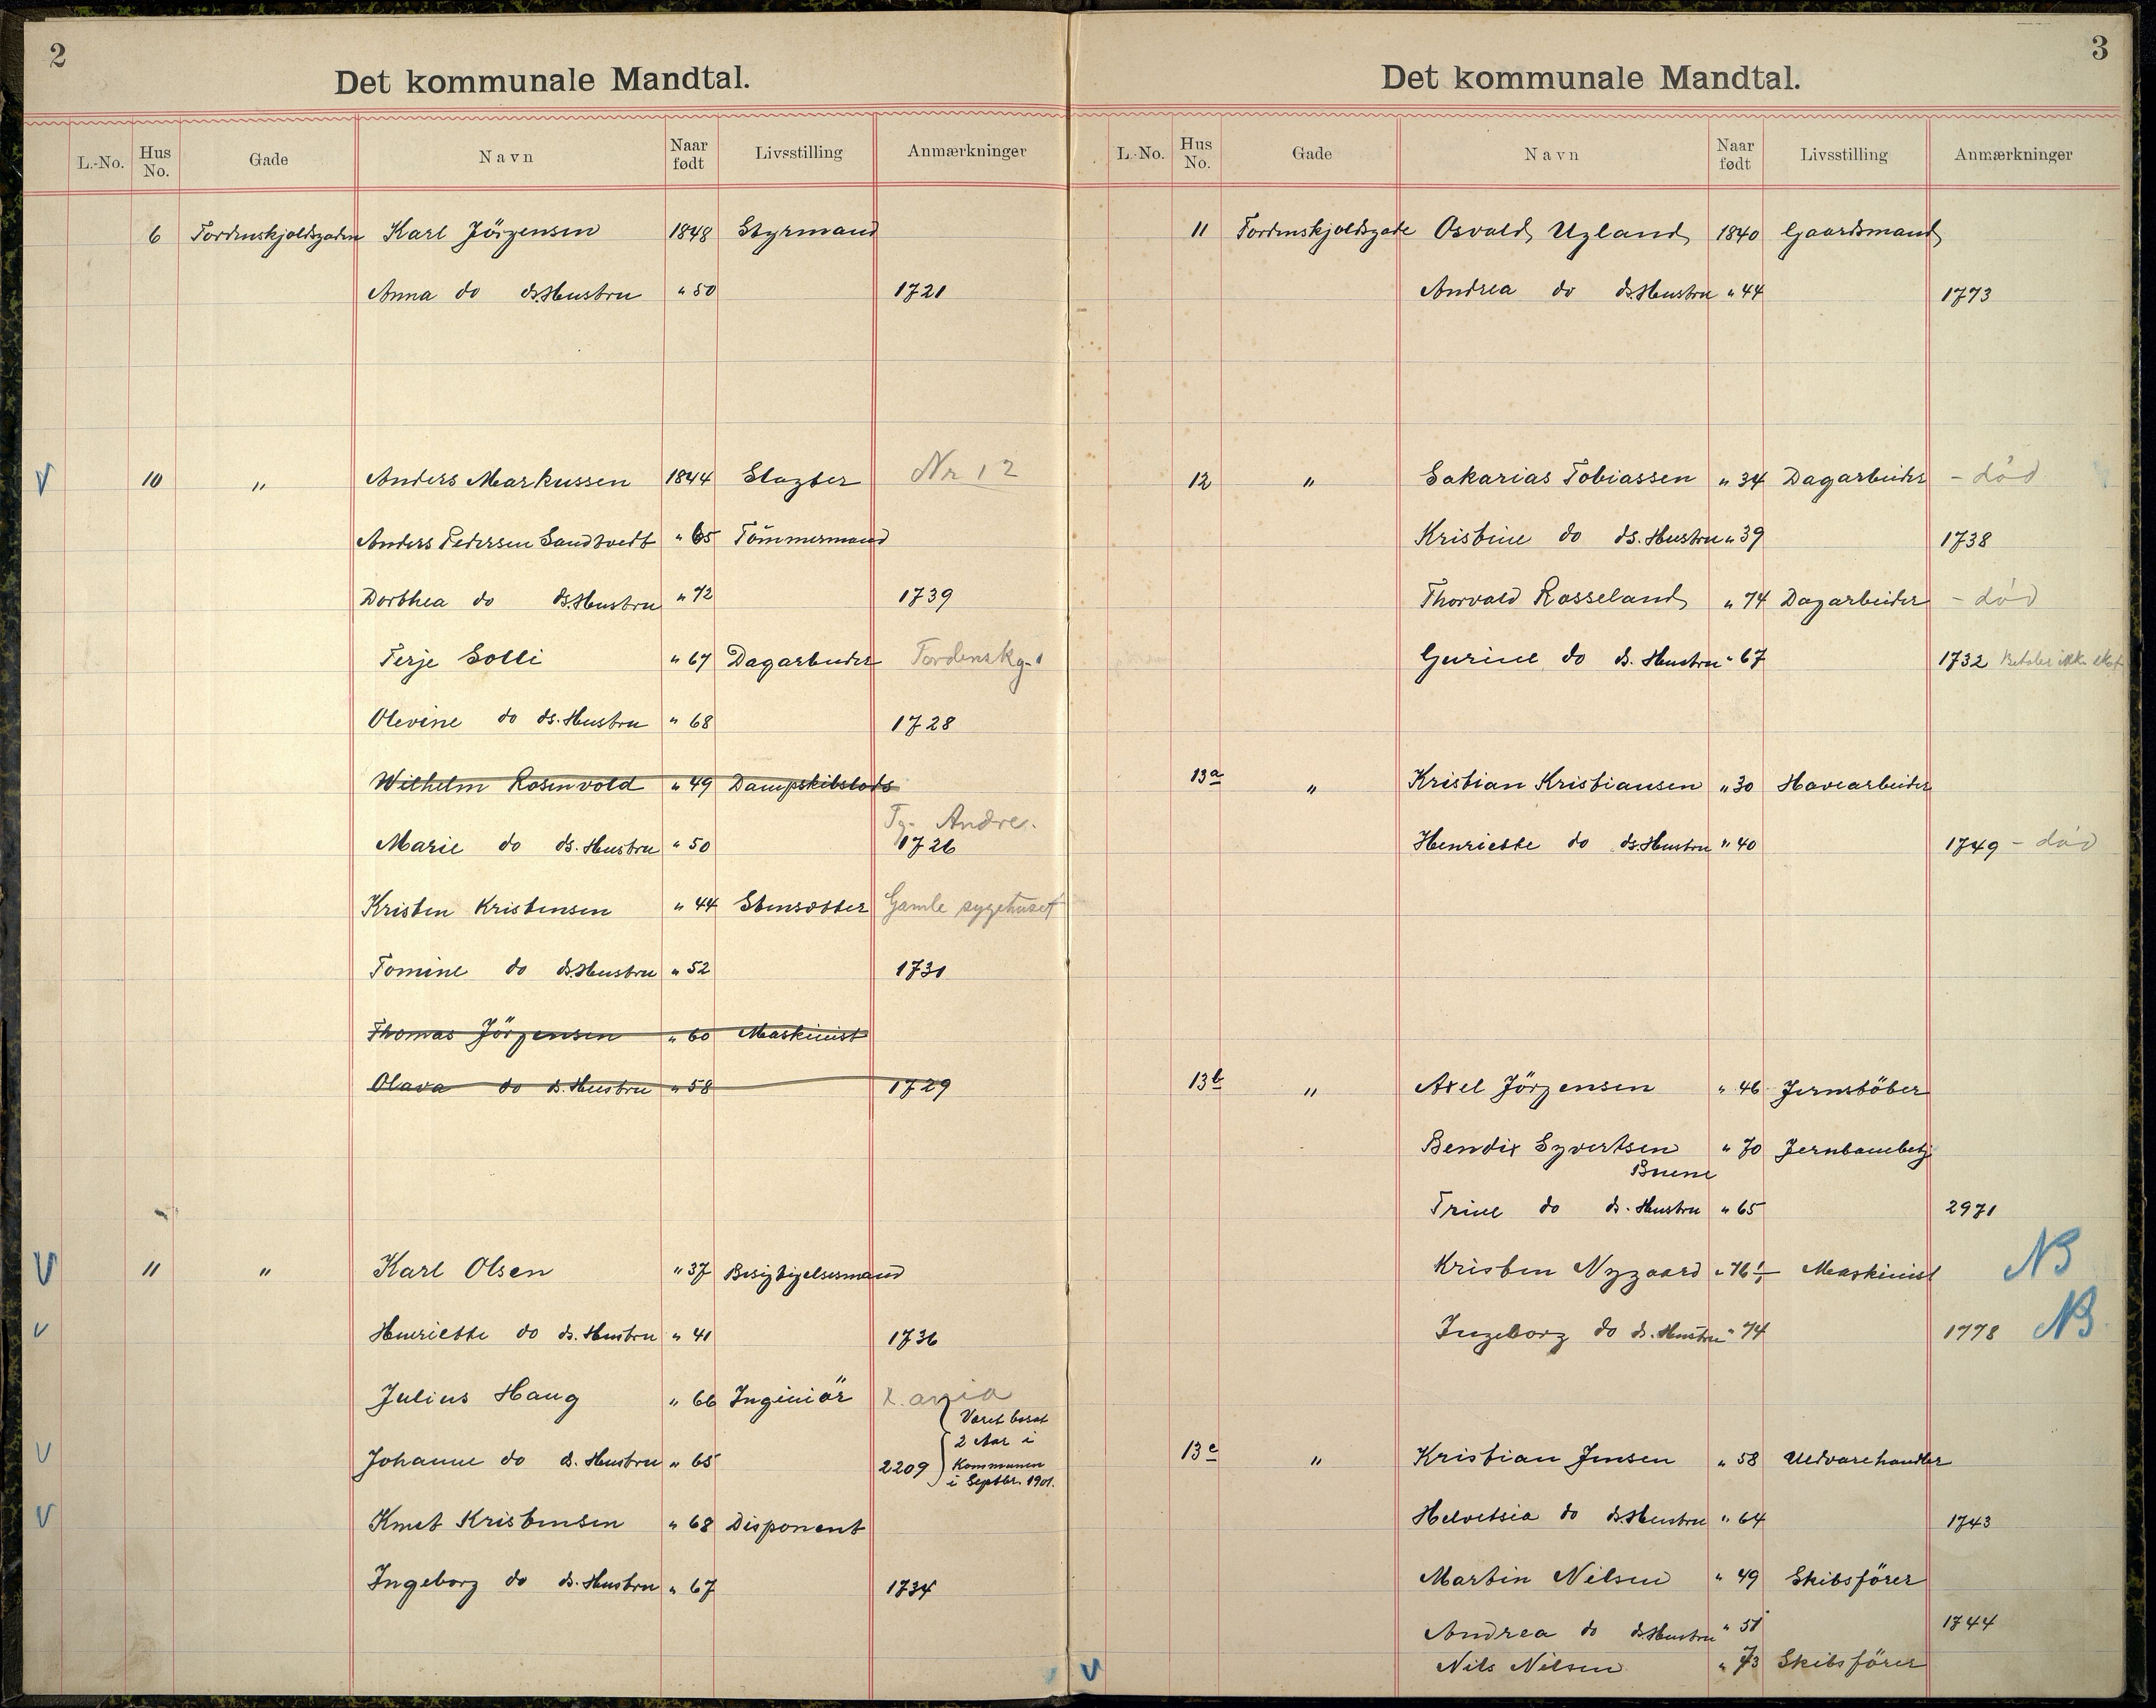 2
Det kommunale Mandtal.
L.-No. Hus No. Gade Navn Naar født Livsstilling Anmærkninger
6 Tordenskjoldsgaden Karl Jörgensen 1848 Styrmand
Anna do ds. Hustru " 50 1721
10 " Anders Markussen 1844 Slagter Nr 12
Anders Pedersen Sandtvedt " 65 Tömmermand
Dorthea do ds. Hustru " 72 1739
Terje Solli " 67 Dagarbeider Tordenskg.
Olevine do ds. Hustru " 68 1728
Wilhelm Rosenvold " 49 Dampskibslods
Tg. Andre.
Marie do ds. Hustru " 50 1726
Kristen Kristensen " 44 Stensætter Gamle sygehuset
Tomine do ds. Hustru " 52 1731
Thomas Jörgensen " 60 Maskinist
Olava do ds. Hustru " 58 1729
11 " Karl Olsen " 37 Besigtigelsesmand
Henriette do ds. Hustru " 41 1736
Julius Haug " 66 Ingeniör
Johanne do ds. Hustru " 65 2209 Været bosat
2 Aar i
Kommunen
i Septbr. 1901.
Knut Kristensen " 68 Disponent
Ingeborg do ds. Hustru " 67 1734
3
Det kommunale Mandtal.
L.-No. Hus No. Gade Navn Naar født Livsstilling Anmærkninger
11 Tordenskjoldsgade Osvald Ugland 1840 Gaardsmand
Andrea do ds. Hustru " 44 1773
12 " Sakarias Tobiassen " 34 Dagarbeider - död
Kristine do ds. Hustru " 39 1738
Thorvald Rosseland " 74 Dagarbeider - död
Gurine do ds. Hustru " 67 1732 Betaler ikke skat
13a " Kristian Kristiansen " 30 Havearbeider
Henriette do ds. Hustru " 40 1749 - död
13b " Axel Jörgensen " 46 Jernstöber
Bendix Syvertsen " 70 Jernbanebetj
Buene
Trine do ds. Hustru " 65 2971
Kristen Nygaard " 76 Maskinist NB
Ingeborg do ds. Hustru " 74 1778 NB
13c " Kristian Jensen " 58 Uldvarehandler
Helvetsia do ds. Hustru " 64 1743
Martin Nilsen " 49 Skibsförer
Andrea do ds. Hustru " 51 1744
Nils Nilsen " 73 Skibsförer